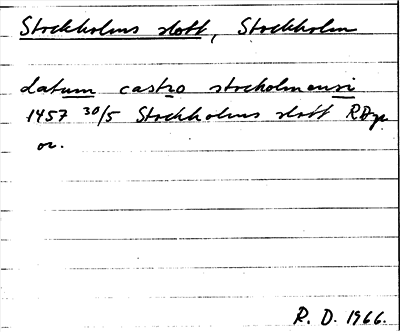 Stockholms slott, Stockholm
datum castro stocholmensi
1457 30/5 Stockholms slott RApp
or.
R. D. 1966.